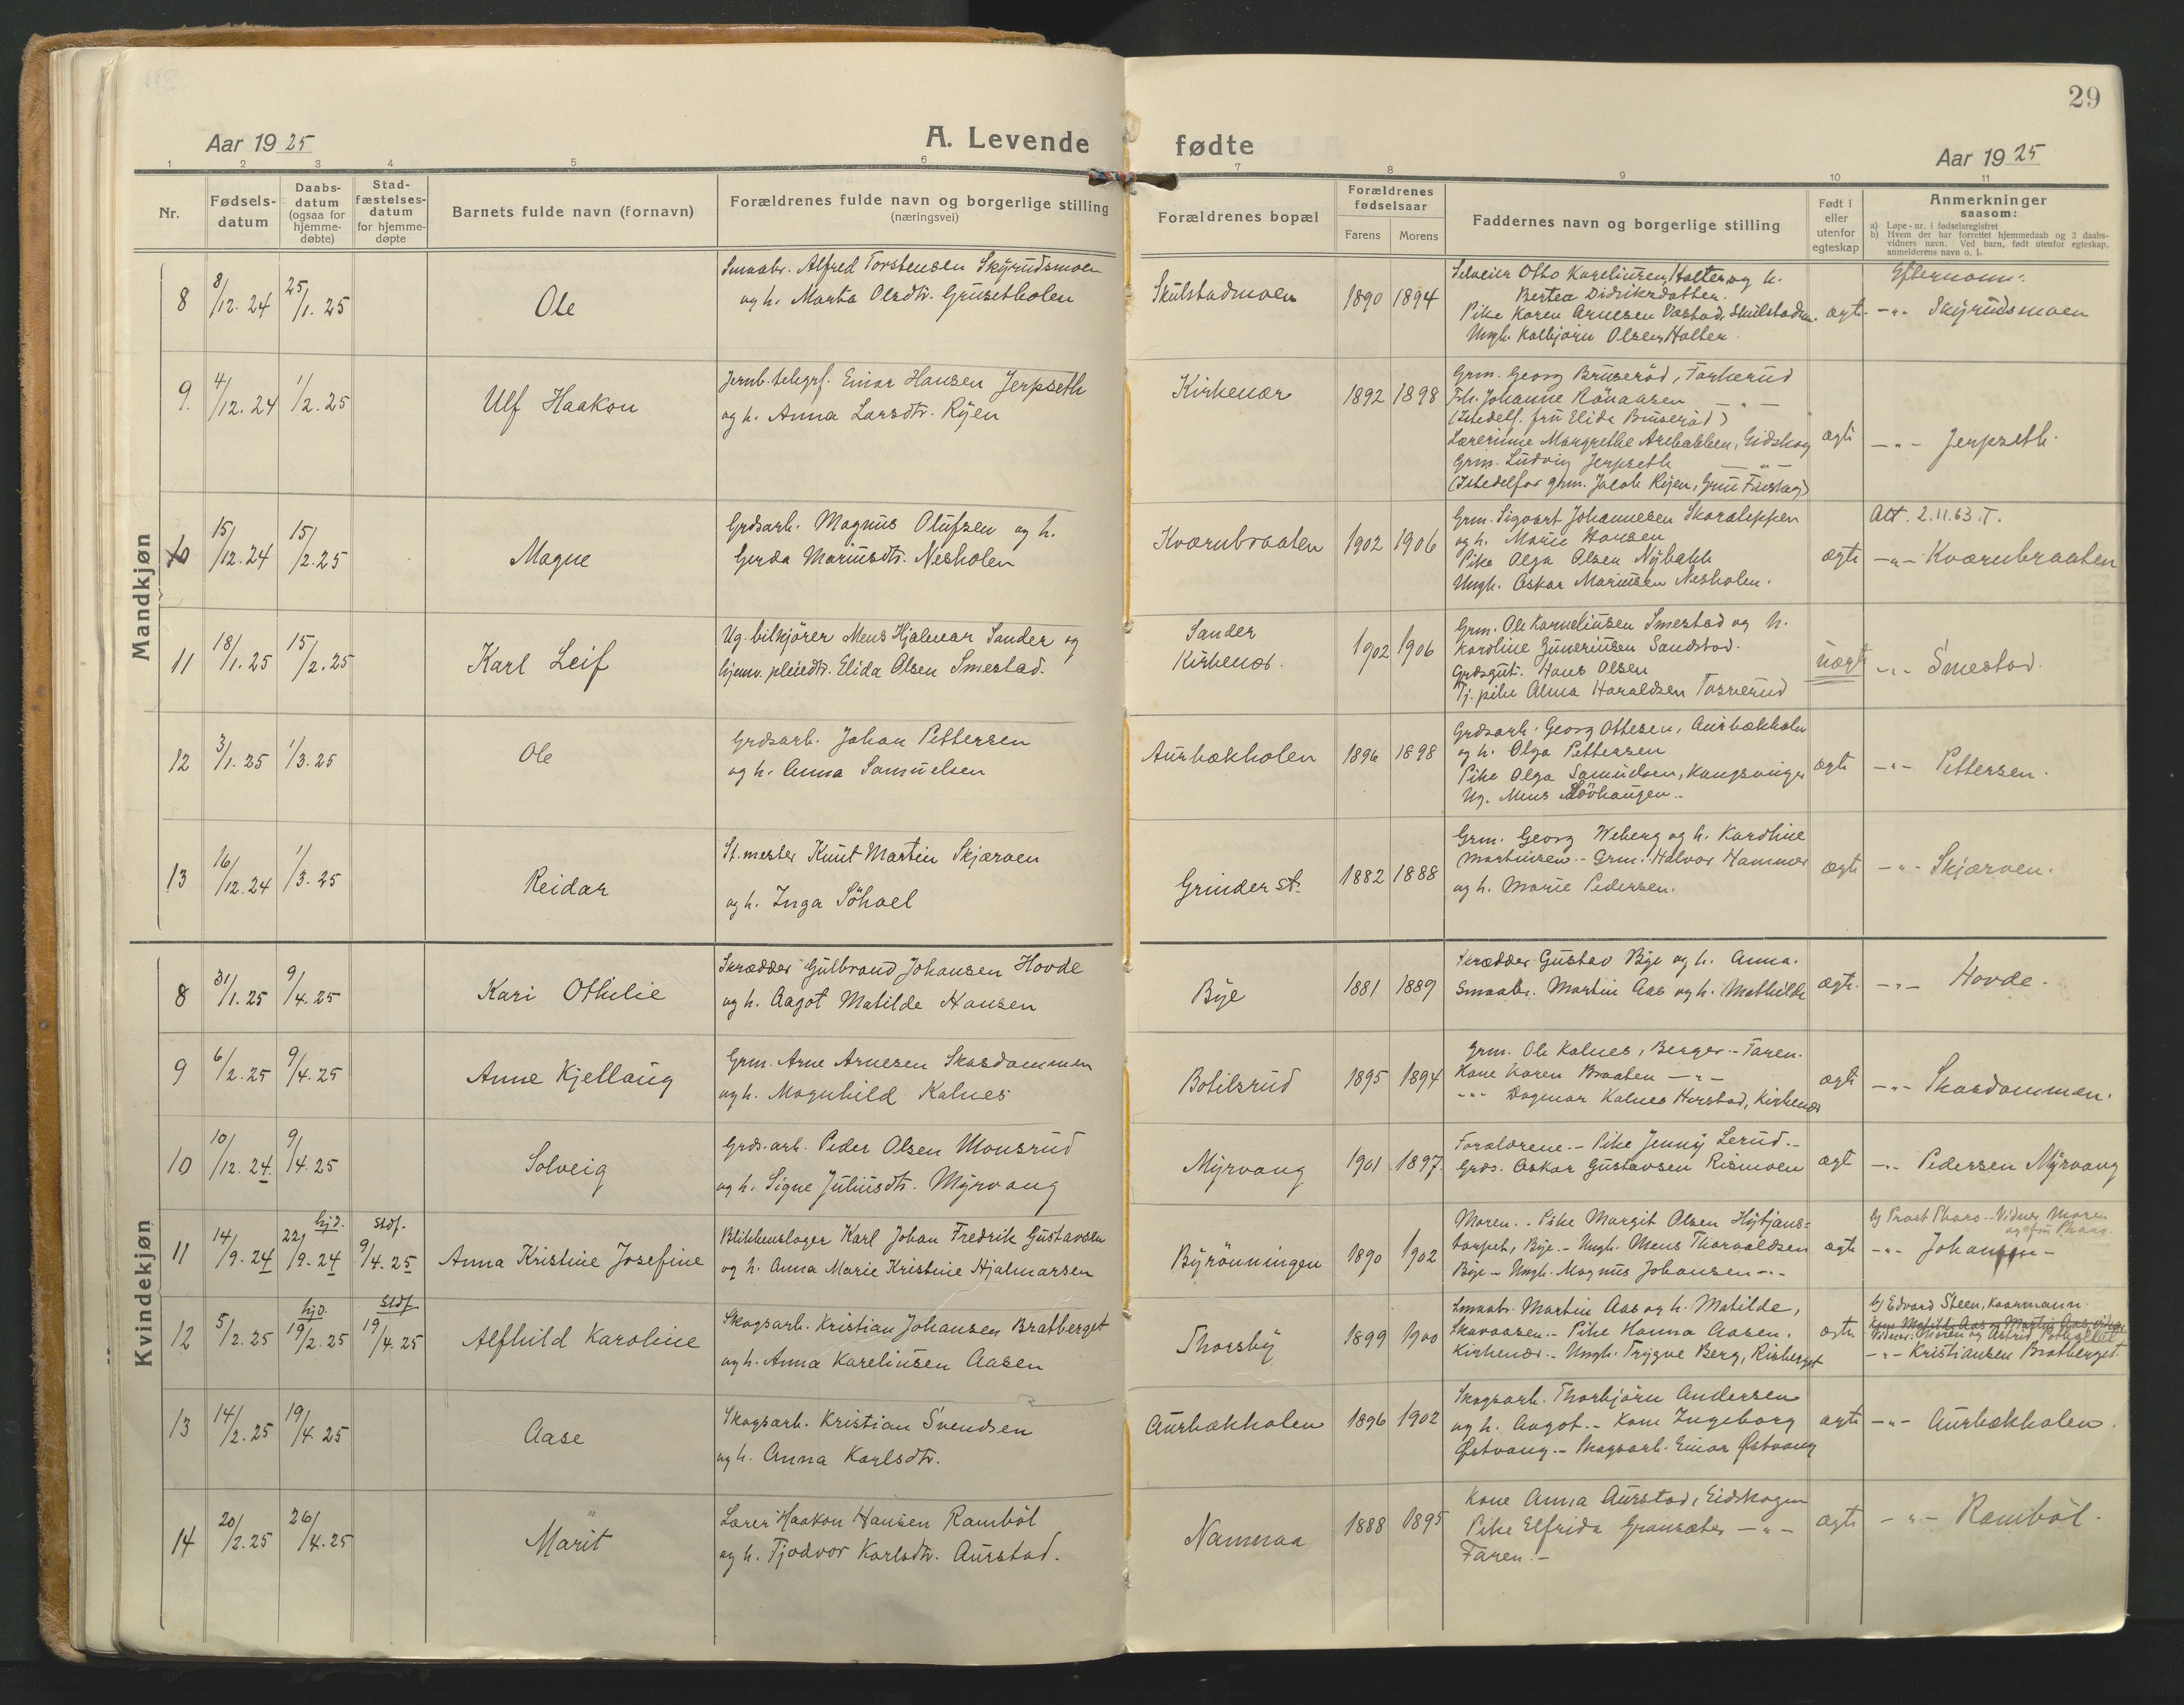 29
Aar 1925
A. Levende fødte
Aar 1925
1 2 3 4 5 6 7 8 9 10 11
Nr.
Fødsels-
datum
Daabs-
datum
(ogsaa for
hjemme-
døbte)
Stad-
fæstelses-
datum
for hjemme-
døpte
Barnets fulde navn (fornavn)
Forældrenes fulde navn og borgerlige stilling
(næringsvei)
Forældrenes bopæl
Forældrenes
fødselsaar
Farens Morens
Faddernes navn og borgerlige stilling
Født i
eller
utenfor
egteskap
Anmerkninger
saasom:
a) Løpe-nr. i fødselsregistret
b) Hvem der har forrettet hjemmedaab og 2 daabs-
vidners navn. Ved barn, født utenfor egteskap,
anmelderens navn o. l.
Mandkjøn
8 8/12. 24 25/1. 25
Ole
Smaabr. Alfred Torstensen Skyrudsmoen
og h. Marta Olsdtr. Grusetholen
Skulstadmoen
1890 1894
Selveier Otto Karelinsen, Holter og h.
Bertea Didriksdatter.
Pike Karen Arnesen Vestad, Skulstadm.
Ungk. Kolbjørn Olsen, Holter.
ægt.
Efternavn:
-"- Skyrudsmoen
9. 4/12. 24 1/2. 25
Ulf Haakon
Jernb.telegrf. Einar Hansen Jerpseth
og h. Anna Larsdtr. Ryen
Kirkenær
1892 1898
Grm. Georg Bruseröd, Torkerud
Frk. Johanne Rönaasen -"-
(Istedetf. fru Elida Bruseröd)
Lærerinne Margrethe Arebakken, Eidskog
Grm. Ludvig Jerpseth -"-
(Istedetfor grm. Jacob Ryen, Grue Finskog)
ægte
-"- Jerpseth.
10 15/12. 24 15/2. 25
Magne
Grdsarb. Magnus Olufsen og h.
Gerda Mariusdtr. Nesholen
Kværnbraaten
1902 1906
Grm. Sigvart Johannesen Skaraleppen
og h. Marie Hansen
Pike Olga Olsen Nybakk
Ungk. Oskar Mariusen Nesholen.
ægte
Att. 2.11.63. T.
-"- Kværnbraaten
11 18/1. 25 15/2. 25
Karl Leif
Ug. bilkjörer Mens Hjalmar Sander og
hjemv. pleiedtr. Elida Olsen Smestad.
Sander
Kirkenær.
1902 1906
Grm. Ole Kornelinsen Smestad og h.
Karoline Gunerinsen Sandstad.
Grdsgut. Hans Olsen
Tj. pike Alma Haraldsen Torrerud
uægte
-"- Smestad.
12 3/1. 25 1/3. 25
Ole
Grdsarb. Johan Pettersen
og h. Anna Samuelsen
Aurbækholen
1896 1898
Grdsarb. Georg Ottesen, Aurbækholen
og h. Olga Pettersen
Pike Olga Samuelsen, Kongsvinger
Ug. Mens Lövhaugen.-
ægte
-"- Pettersen.
13 16/12. 24 1/3. 25
Reidar
St.mester Knut Martin Skjærven
og h. Inga Söhoel
Grinder st.
1882 1888
Grm. Georg Weberg og h. Karoline
Martinsen.- Grm. Halvor Hammer
og h. Marie Pedersen.
ægte
-"- Skjærven.
Kvindekjøn
8 31/1. 25 9/4. 25
Kari Othilie
Skrædder Gulbrand Johansen Hovde
og h. Aagot Matilde Hansen
Bye
1881 1889
Skrædder Gustav Bye og h. Anna.
Smaabr. Martin Aas og h. Mathilde
ægte.
-"- Hovde.
9 6/2. 25 9/4. 25
Anne Kjellaug
Grm. Arne Arnesen Skasdammen
og h. Magnhild Kalnes
Botilsrud
1895 1894
Grm. Ole Kalnes, Berger.- Faren.
Kone Karen Braaten -"-
-"- Dagmar Kalnes Herstad, Kirkenær
ægte
-"- Skasdammen.
10 10/12. 24. 9/4. 25
Solveig
Grds.arb. Peder Olsen Monsrud
og h. Signe Juliusdtr. Myrvang
Myrvang
1901 1897.
Forældrene.- Pike Jenny Lerud.-
Grds. Oskar Gustavsen Rismoen
ægt
-"- Pedersen Myrvang
11 14/9. 24 hjd. 22/9. 24 Stdf. 9/4. 25
Anna Kristine Josefine
Blikkenslager Karl Johan Fredrik Gustavsen
og h. Anna Marie Kristine Hjalmarsen
Byrönningen
1890 1902
Moren.- Pike Margit Olsen Hytjans-
torpet, Bye.- Ungk. Mens Thorvaldsen
Bye - Ungk. Magnus Johansen -"-
ægte
-"- Johansen -
12 5/2. 25 hjd. 19/2. 25 Stdf. 19/4. 25
Alfhild Karoline
Skogsarb. Kristian Johansen Bratberget
og h. Anna Karelinsen Aasen
Thorsby
1899 1900
Smaabr. Martin Aas og h. Matilde,
Skavaasen.- Pike Hanna Aasen.
Kirkenær.- Ungk. Trygve Berg, Risberget
ægte
bj Edvard Steen, Kaarmann.
Kone Matilde Aas og Martin Aas, vidner
Vidner: Moren og Astrid
-"- Kristiansen Bratberget.
13 14/2. 25 19/4. 25
Aase
Skogsarb. Kristian Svendsen
og h. Anna Karlsdtr.
Aurbækholen
1896 1902
Skogsarb. Thorbjörn Andersen
og h. Aagot.- Kone Ingeborg
Østvang.- Skogsarb. Einar Østvang
ægte
-"- Aurbækholen.
14 20/2. 25 26/4. 25
Marit
Lærer Haakon Hansen Ramböl
og h. Tjodvor Karlsdtr. Aurstad.
Namnaa
1888 1895
Kone Anna Aurstad, Eidskogen
Pike Elfrida Gransæter -"-
Faren.-
ægte
-"- Ramböl.